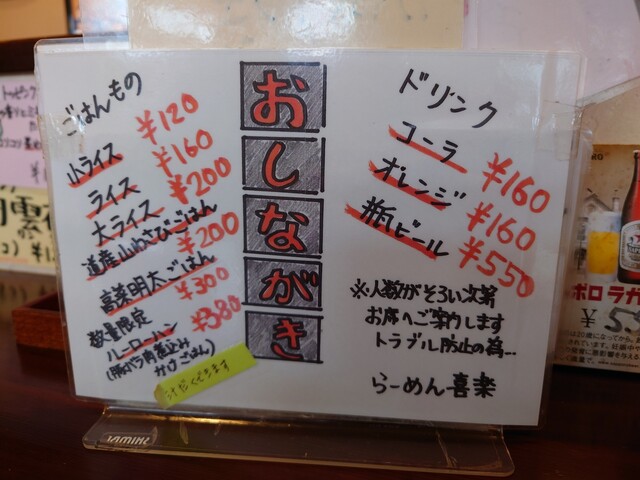 おしながき
ドリンク
コーラ ¥160
オレンジ ¥160
瓶ビール ¥550
※人数がそろい次第
お席へご案内します
トラブル防止の為…
らーめん喜楽
ごはんもの
小ライス ¥120
ライス ¥160
大ライス ¥200
道産山わさびごはん ¥200
高菜明太ごはん ¥300
数量限定
ルーローハン ¥380
(豚バラ角煮込み
かけごはん)
つゆだくできます
TAMIHI
トッピング
ポロ ラガ
¥